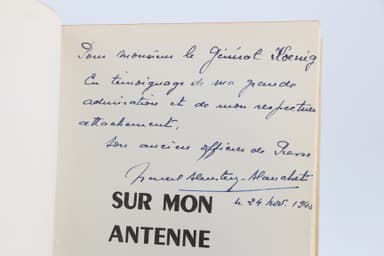 Pour monsieur le Général Koenig
En témoignage de ma grande
admiration et de mon respectueux
attachement,
Son ancien officier de Presse
le 24 nov.
SUR MON
ANTENNE